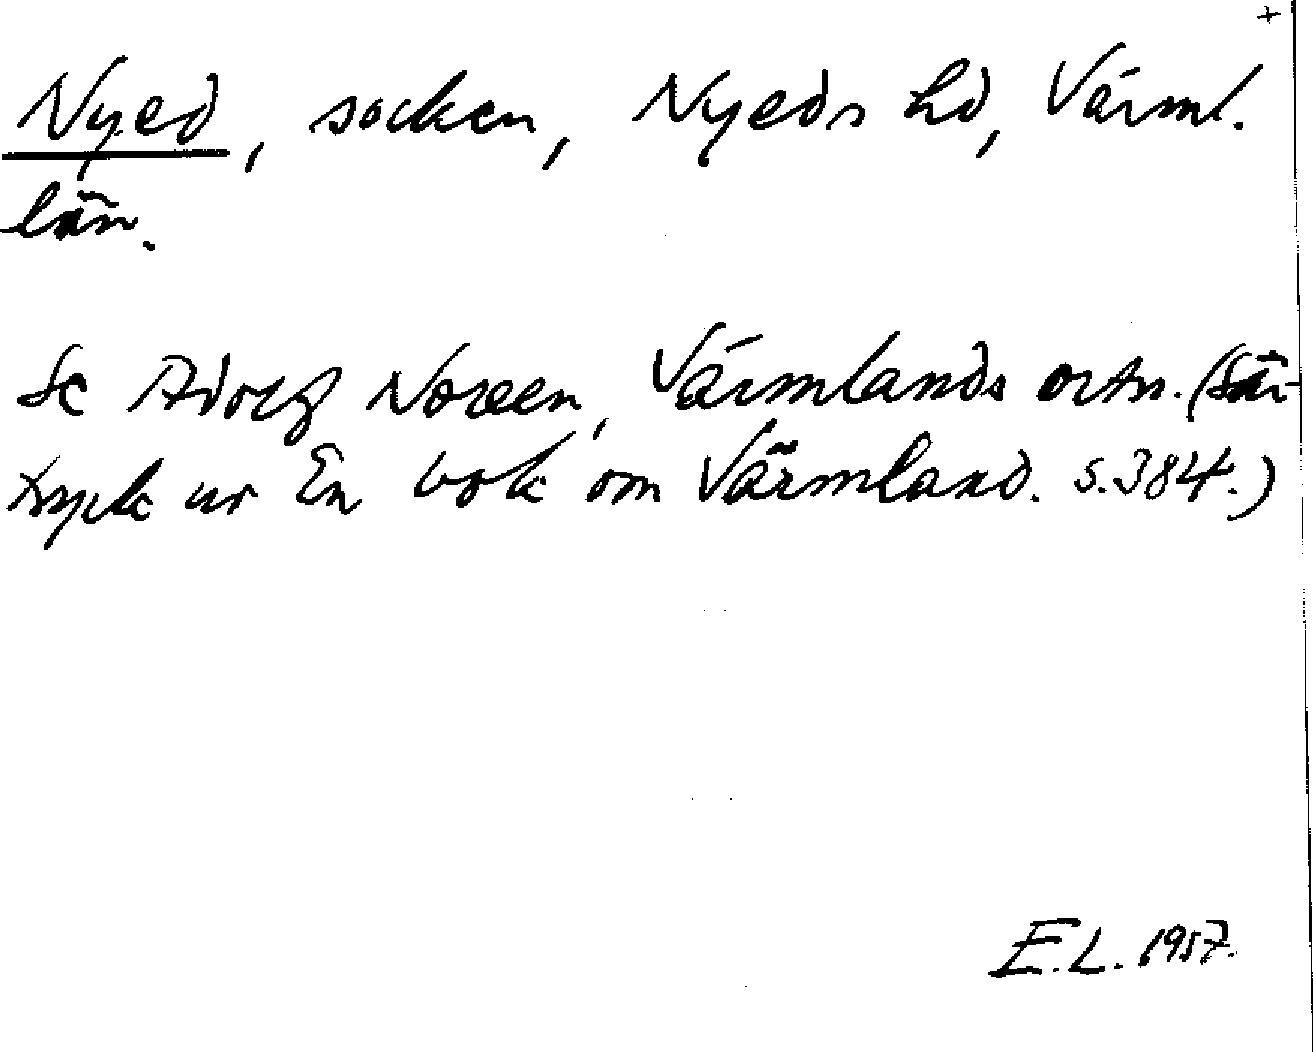 +
Nyed, socken, Nyeds hd, Värml.
län.
Se Adolf Noreen, Värmlands ortn. (Sär-
tryck ur En bok om Värmland. s.384.)
E.L. 1957.